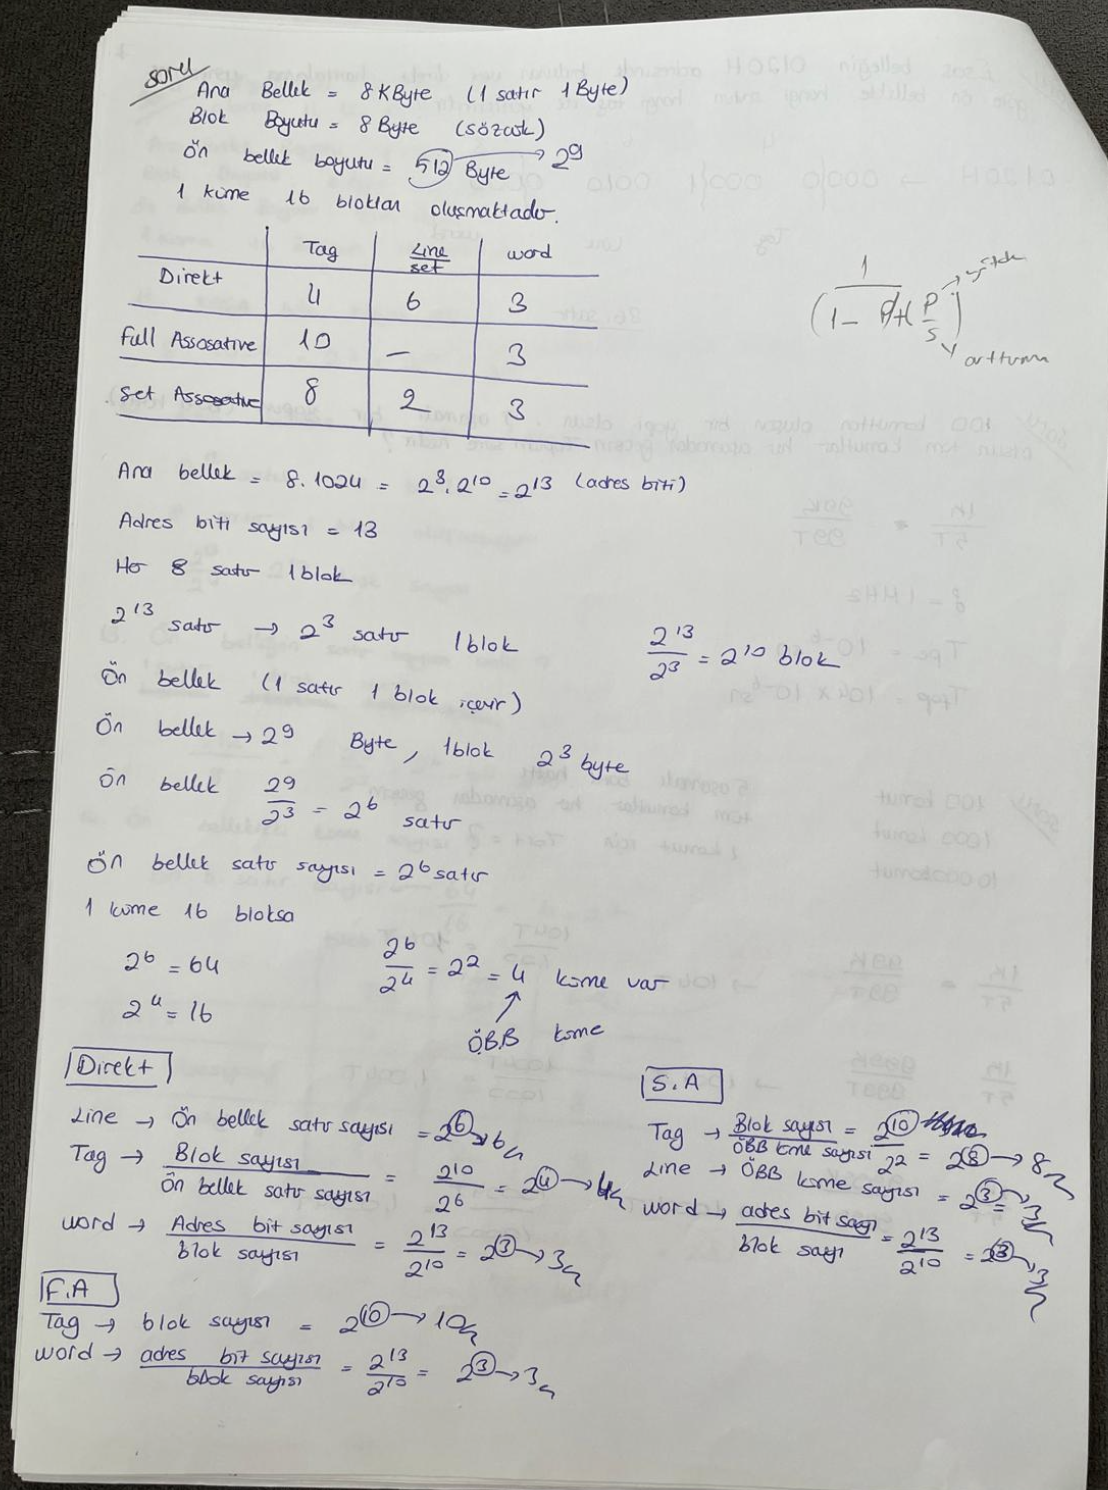 soru
Ana Bellek = 8 KByte (1 satır 1 Byte)
Blok Boyutu = 8 Byte (sözcük)
Ön bellek boyutu = 512 Byte → 2^9
1 küme 16 bloktan oluşmaktadır.
Tag | Line/set | word
Direkt | 4 | 6 | 3
Full Assosative | 10 | – | 3
Set Assosative | 8 | 2 | 3
1 / (1 - P) + (P/S)
arttırma
Ana bellek = 8.1024 = 2^3 . 2^10 = 2^13 (adres biti)
Adres biti sayısı = 13
Her 8 satır 1 blok
2^13 satır → 2^3 satır 1 blok 2^13/2^3 = 2^10 blok
Ön bellek (1 satır 1 blok içerir)
Ön bellek → 2^9 Byte, 1 blok 2^3 byte
Ön bellek 2^9/2^3 = 2^6 satır
Ön bellek satır sayısı = 2^6 satır
1 küme 16 bloksa
2^6 = 64 2^6/2^4 = 2^2 = 4 küme var
2^4 = 16
ÖBB küme
Direkt
Line → Ön bellek satır sayısı = 2^6 → 6
Tag → Blok sayısı / Ön bellek satır sayısı = 2^10/2^6 = 2^4 → 4
word → Adres bit sayısı / blok sayısı = 2^13/2^10 = 2^3 → 3
F.A
Tag → blok sayısı = 2^10 → 10
word → adres bit sayısı / blok sayısı = 2^13/2^10 = 2^3 → 3
S.A
Tag → Blok sayısı / ÖBB küme sayısı = 2^10/2^2 = 2^8 → 8
Line → ÖBB küme sayısı = 2^3 = 3
word → adres bit sayı / blok sayı = 2^13/2^10 = 2^3 → 3